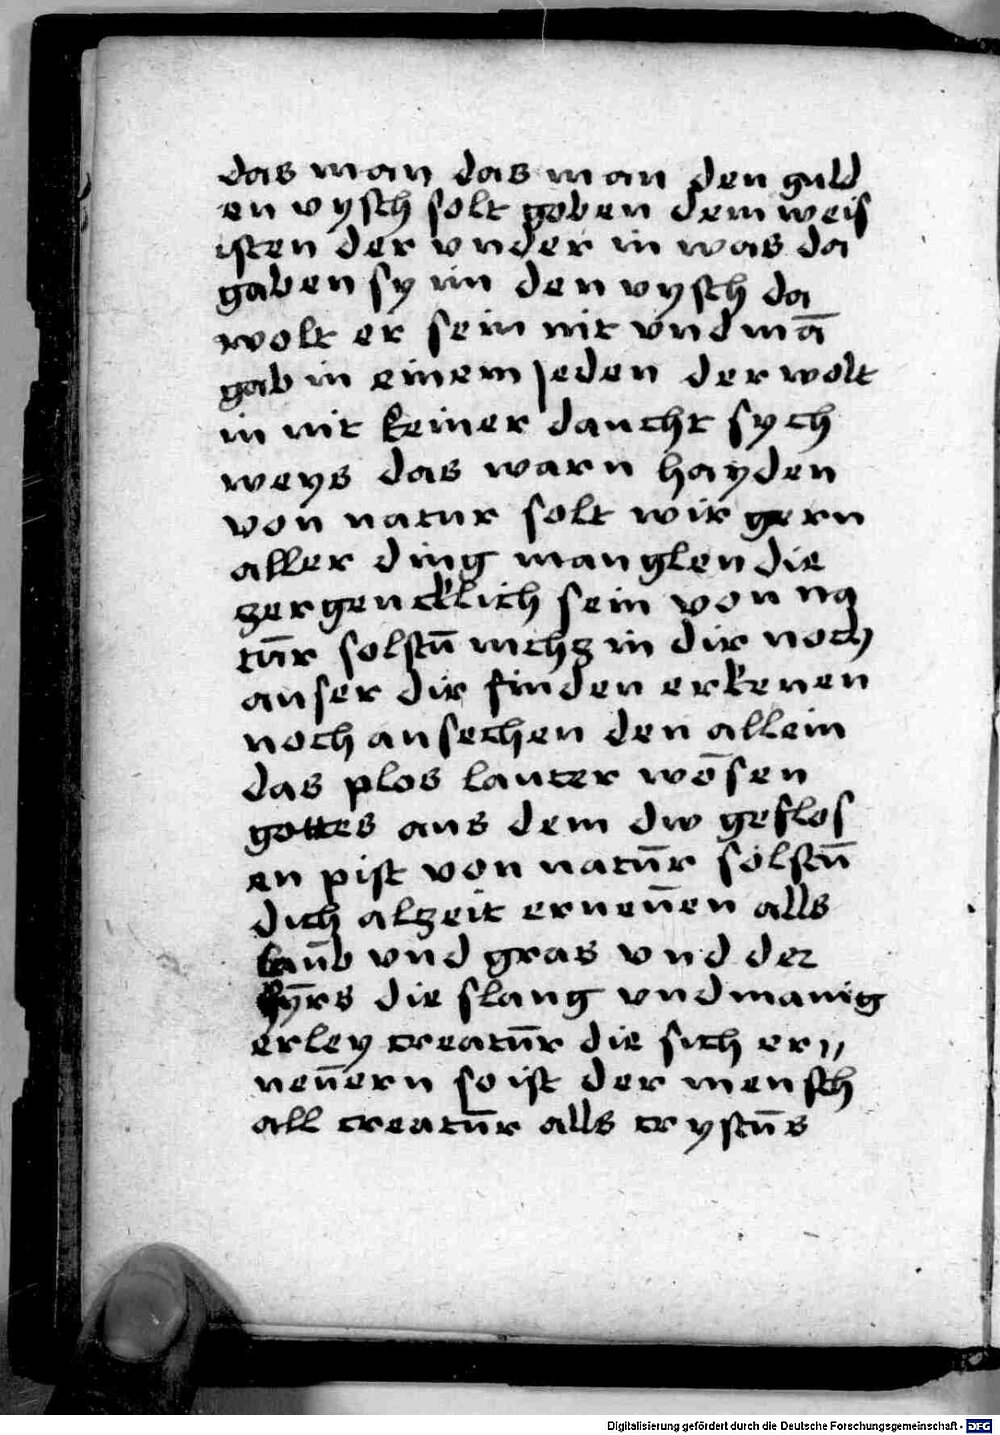 das man das man den guld
en vysch solt geben dem weis
isten der vnder in was da
gaben sy im den vysch da
wolt er sein nit vnd mā
gab in einem jeden der wolt
in nit keiner daucht sych
weys das warn hayden
von natur solt wir gern
aller ding manglen die
zergencklich sein von na
tūr solstū nichz in dir noch
auser dir finden erkenen
noch ansechen den allein
das plos lauter wēsen
gottes aus dem dw geflos
en pist von natūr solstū
dich alzeit erneūen alls
laūb vnd gras vnd der
hȳrs die slang vnd manig
erley creatūr die sich er〃
neūern so ist der mensch
all creatūr alls crystūs
Digitalisierung gefördert durch die Deutsche Forschungsgemeinschaft - DFG